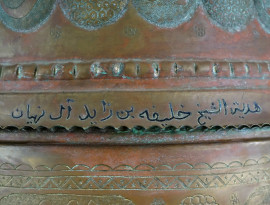 هدية الشيخ خليفه بن زايد آل نهيان